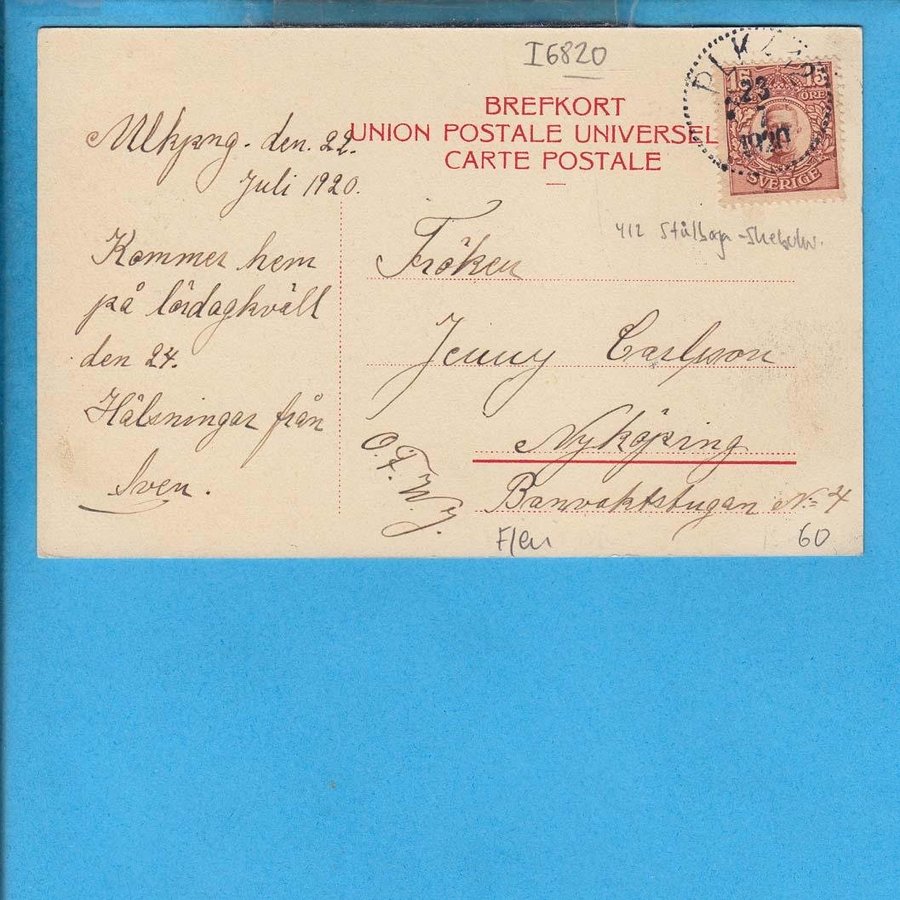 I6820
BREFKORT
UNION POSTALE UNIVERSEL
CARTE POSTALE
PLK
23
7
1920
15 15
ÖRE
SVERIGE
den. 22.
Juli 1920.
Kommer hem
på lördagkväll
den 24.
Hälsningar från
Sven.
412 Stålboga
Fröken
Jenny Carlsson
Nyköping
Banvaktstugan No 4
O.F.W.J.
Flen
60